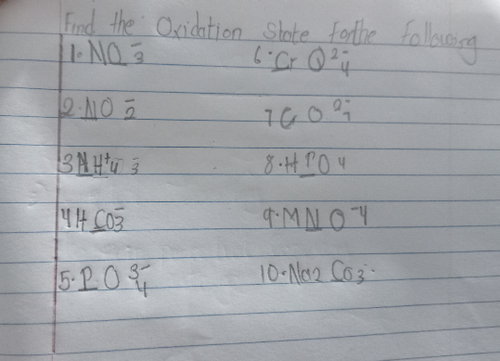 Find the Oxidation State forthe following
1. NO₃⁻ 6. Cr O₄²⁻
2. NO₂⁻ 7 C O₇²⁻
3 N H⁺4 3⁻ 8. H P O 4
4 H CO₃⁻ 9. M N O⁻4
5. P O₄³⁻ 10. Na2 Co3.